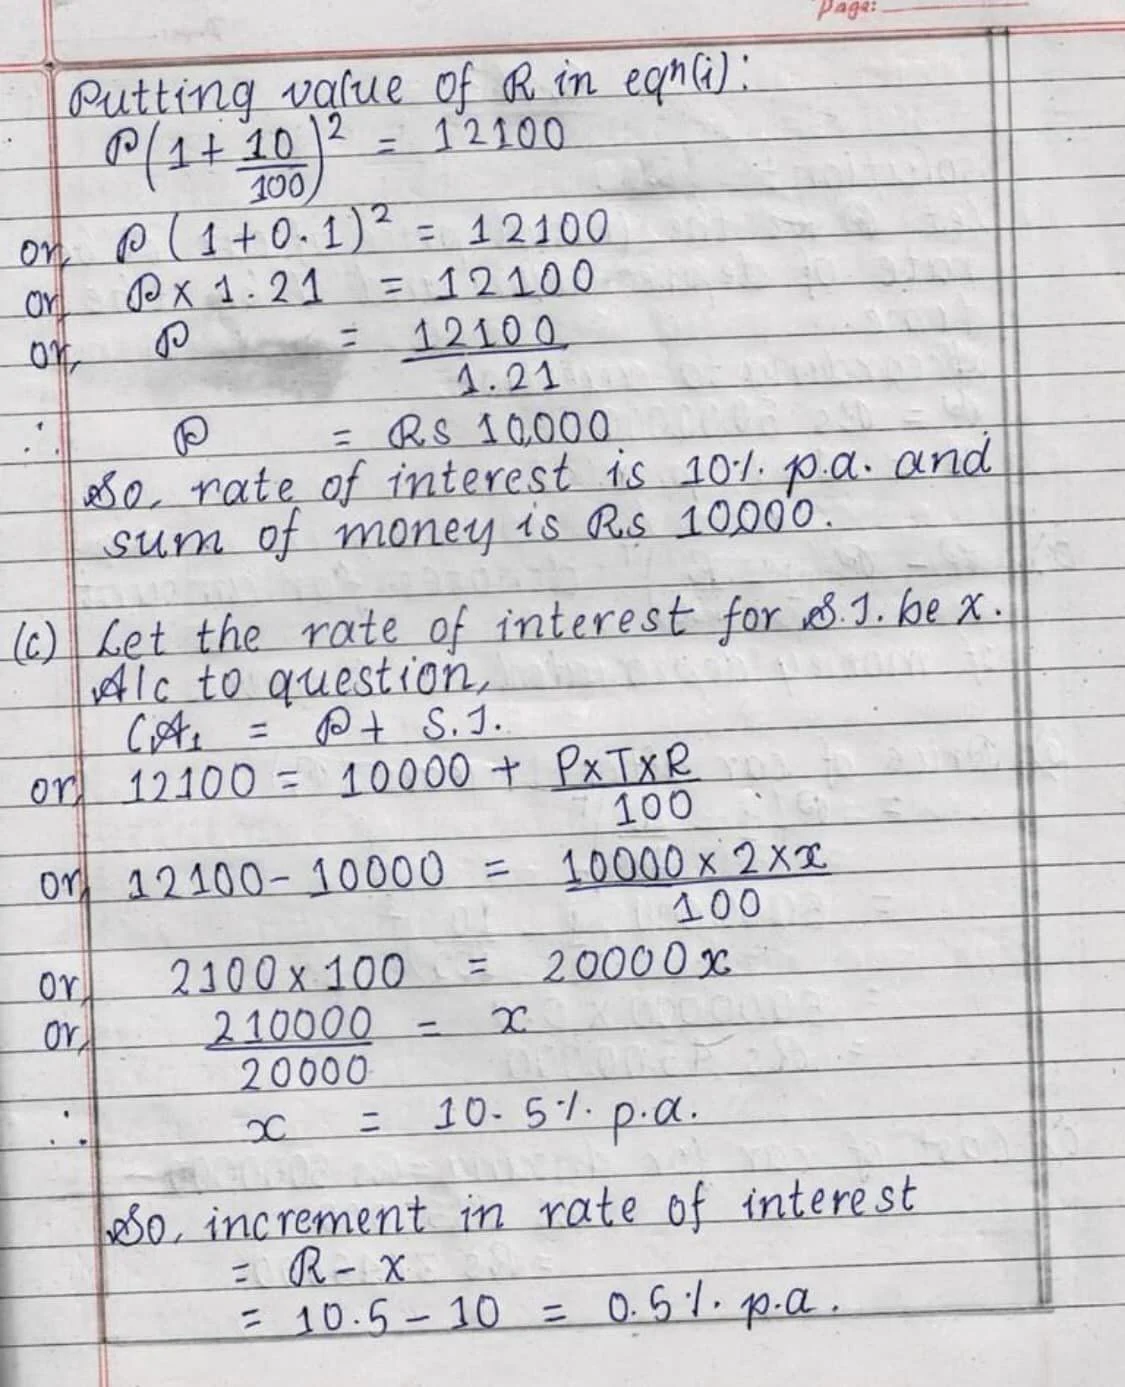 Page:
Putting value of R in eqn(i):
P(1 + 10/100)² = 12100
or, P(1+0.1)² = 12100
or, P x 1.21 = 12100
or, P = 12100/1.21
∴ P = Rs 10,000
So, rate of interest is 10%. p.a. and
sum of money is Rs 10,000.
(c) Let the rate of interest for S.I. be x.
A/c to question,
CA₁ = P + S.I.
or, 12100 = 10000 + PxTxR/100
or, 12100 - 10000 = 10000 x 2 x x/100
or, 2100 x 100 = 20000x
or, 210000/20000 = x
∴ x = 10.5%. p.a.
So, increment in rate of interest
= R - x
= 10.5 - 10 = 0.5%. p.a.